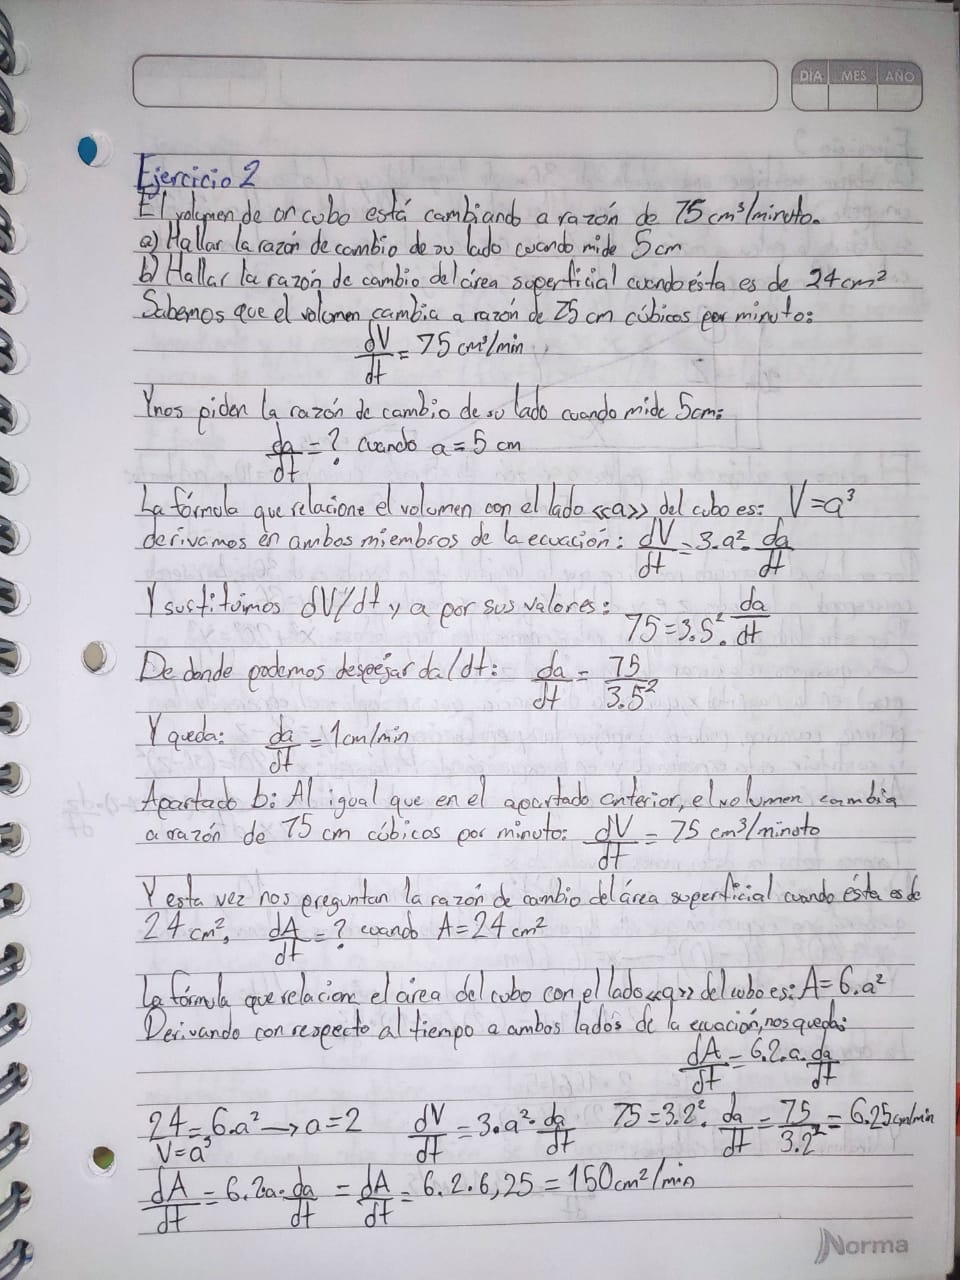 DÍA MES AÑO
Ejercicio 2
El volumen de un cubo está cambiando a razón de 75 cm³/minuto.
a) Hallar la razón de cambio de su lado cuando mide 5 cm
b) Hallar la razón de cambio del área superficial cuando ésta es de 24 cm²
Sabemos que el volumen cambia a razón de 75 cm cúbicos por minuto:
dV/dt = 75 cm³/min
Y nos piden la razón de cambio de su lado cuando mide 5cm:
da/dt = ? cuando a = 5 cm
La fórmula que relacione el volumen con el lado <<a>> del cubo es: V=a³
derivamos en ambos miembros de la ecuación: dV/dt = 3.a².da/dt
Y sustituimos dV/dt y a por sus valores: 75=3.5².da/dt
De donde podemos despejar da/dt: da/dt = 75/3.5²
Y queda: da/dt = 1cm/min
Apartado b: Al igual que en el apartado anterior, el volumen cambia
a razón de 75 cm cúbicos por minuto: dV/dt = 75 cm³/minuto
Y esta vez nos preguntan la razón de cambio del área superficial cuando ésta es de
24 cm², dA/dt = ? cuando A=24 cm²
La fórmula que relacione el área del cubo con el lado <<a>> del cubo es: A=6.a²
Derivando con respecto al tiempo a ambos lados de la ecuación, nos queda:
dA/dt = 6.2.a.da/dt
24=6.a² → a=2 dV/dt = 3.a².da/dt 75=3.2².da/dt = 75/3.2² = 6.25cm/min
V=a³
dA/dt = 6.2a.da/dt = dA/dt = 6.2.6,25 = 150cm²/min
Norma